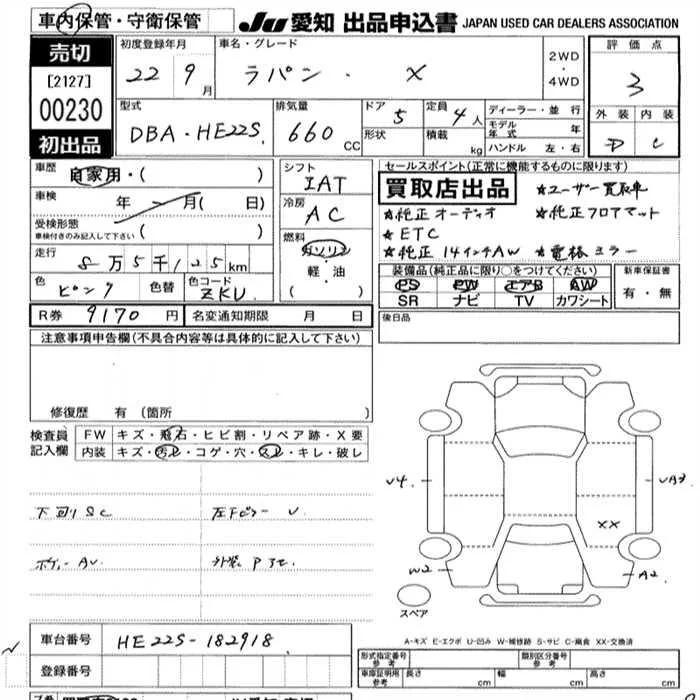 車内保管・守衛保管
JU 愛知 出品申込書 JAPAN USED CAR DEALERS ASSOCIATION
売切
[2127]
00230
初出品
初度登録年月 22 9月
車名・グレード ラパン・ X
2WD・4WD
評価点 3
外装 内装
D C
型式 DBA・HE22S
排気量 660 CC
ドア 5
形状
定員 4人
積載 kg
ディーラー・並行
モデル年式 年
ハンドル 左・右
車歴 自家用・( )
車検 年 月( 日)
受検形態
車検付きのみ記入して下さい ( )
走行 8万5千125km
色 ピンク 色替 色コード ZKU
シフト IAT
冷房 AC
燃料 ガソリン
軽・油
( )
セールスポイント(正常に機能するものに限ります)
買取店出品 ★ユーザー買取車
★純正オーディオ ★純正フロアマット
★ETC
★純正14インチAW ★電格ミラー
装備品(純正品に限り○をつけてください)
PS PW エアB AW
SR ナビ TV カワシート
新車保証書
有・無
R券 9170円 名変通知期限 月 日
後日品
注意事項申告欄(不具合内容等は具体的に記入して下さい)
修復歴 有(箇所 )
検査員記入欄
FW キズ・飛石・ヒビ割・リペア跡・X要
内装 キズ・汚レ・コゲ・穴・スレ・キレ・破レ
下回りSC 左Fピラー U
ボディーAU
U4 UA3
XX
W2 A2
スペア
A-キズ E-エクボ U-凹み W-補修跡 S-サビ C-腐食 XX-交換済
車台番号 HE22S-182918
登録番号
形式指定番号 参考 類別区分番号 参考
車庫証明用 参考 長さ cm 幅 cm 高さ cm